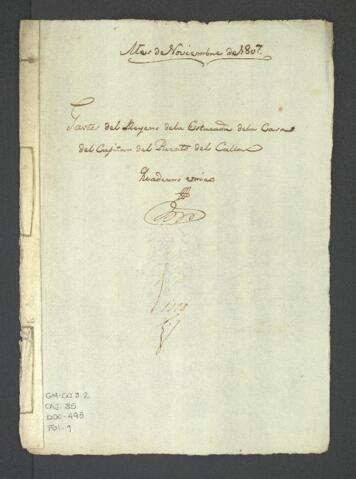 Mes de Noviembre de 1807.
Gastos del Reyeno de la Estacada de la Casa
del Capitan del Puerto del Callao
Quaderno unico
GM-CO 3.2
CAJ. 35
DOC-495
FOL-9